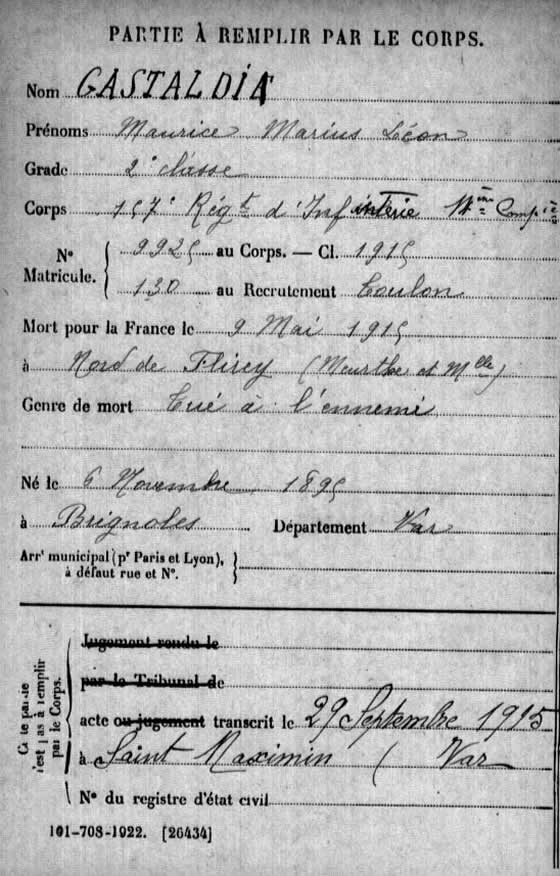 PARTIE À REMPLIR PAR LE CORPS.
Nom GASTALDIA
Prénoms Maurice Marius Léon
Grade 2e classe
Corps 157e Régt d'Infanterie 11me Compie
N° Matricule. 9925 au Corps. — Cl. 1915
130 au Recrutement Toulon
Mort pour la France le 9 Mai 1915
à Nord de Flirey (Meurthe et Mlle)
Genre de mort Tué à l'ennemi
Né le 6 Novembre 1895
à Brignoles Département Var
Arrt municipal (pr Paris et Lyon),
à défaut rue et N°.
Jugement rendu le
par le Tribunal de
acte ou jugement transcrit le 29 Septembre 1915
à Saint Maximin ( Var
N° du registre d'état civil
Cette partie
n'est pas à remplir
par le Corps.
101-708-1922. [26434]